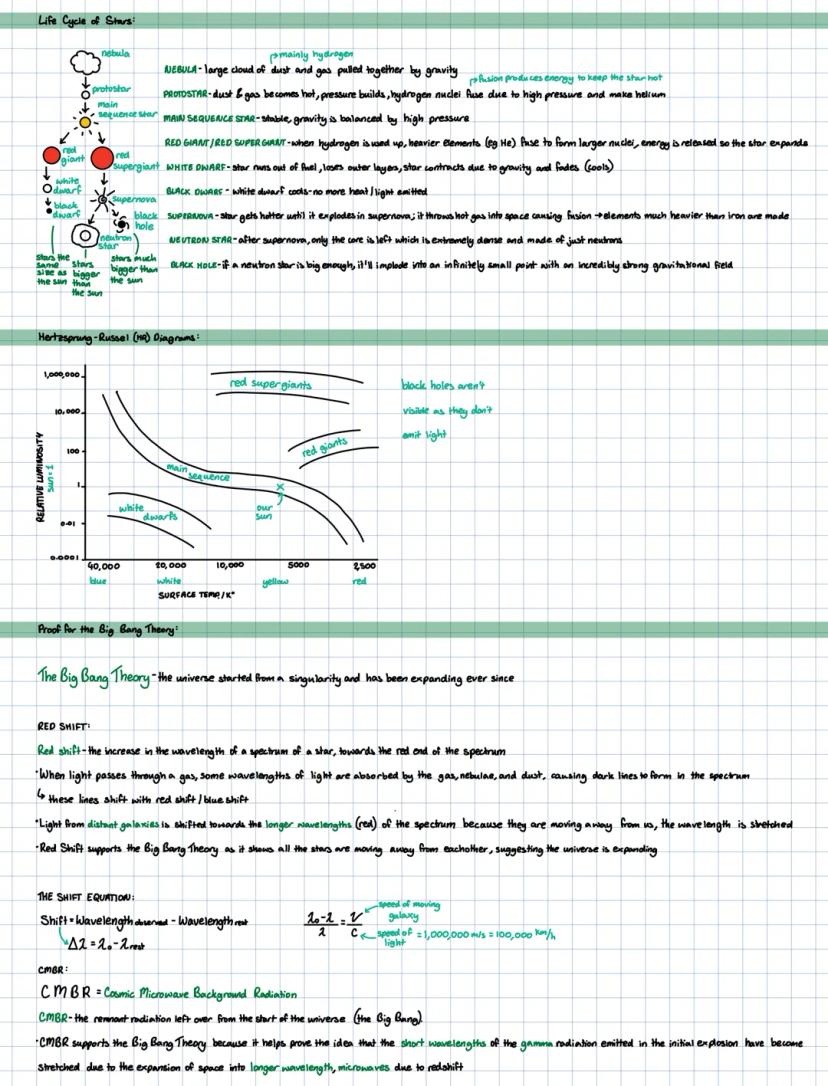 Life Cycle of Stars:
nebula
protostar
main
sequence star
red
giant
red
supergiant
white
dwarf
supernova
black
dwarf
black
hole
neutron
star
stars the
same
size as
the sun
stars
bigger
than
the sun
stars much
bigger than
the sun
mainly hydrogen
NEBULA - large cloud of dust and gas pulled together by gravity
fusion produces energy to keep the star hot
PROTOSTAR - dust & gas becomes hot, pressure builds, hydrogen nuclei fuse due to high pressure and make helium
MAIN SEQUENCE STAR - stable, gravity is balanced by high pressure
RED GIANT/RED SUPERGIANT - when hydrogen is used up, heavier elements (eg He) fuse to form larger nuclei, energy is released so the star expands
WHITE DWARF - star runs out of fuel, loses outer layers, star contracts due to gravity and fades (cools)
BLACK DWARF - white dwarf cools - no more heat/light emitted
SUPERNOVA - star gets hotter until it explodes in supernova; it throws hot gas into space causing fusion → elements much heavier than iron are made
NEUTRON STAR - after supernova, only the core is left which is extremely dense and made of just neutrons
BLACK HOLE - if a neutron star is big enough, it'll implode into an infinitely small point with an incredibly strong gravitational field
Hertzsprung-Russel (HR) Diagrams:
1,000,000
10,000
100
1
0.01
0.0001
RELATIVE LUMINOSITY
sun = 1
red supergiants
red giants
main
sequence
white
dwarfs
our
sun
40,000 20,000 10,000 5000 2,500
blue white yellow red
SURFACE TEMP/K°
black holes aren't
visible as they don't
emit light
Proof for the Big Bang Theory:
The Big Bang Theory - the universe started from a singularity and has been expanding ever since
RED SHIFT:
Red shift - the increase in the wavelength of a spectrum of a star, towards the red end of the spectrum
·When light passes through a gas, some wavelengths of light are absorbed by the gas, nebulae, and dust, causing dark lines to form in the spectrum
↳ these lines shift with red shift/blue shift
·Light from distant galaxies is shifted towards the longer wavelengths (red) of the spectrum because they are moving away from us, the wavelength is stretched
·Red Shift supports the Big Bang Theory as it shows all the stars are moving away from eachother, suggesting the universe is expanding
THE SHIFT EQUATION:
Shift = Wavelength observed - Wavelength rest
Δλ = λo - λ rest
λo-λ/λ = V/C
speed of moving
galaxy
speed of light = 1,000,000 m/s = 100,000 km/h
CMBR:
CMBR = Cosmic Microwave Background Radiation
CMBR - the remnant radiation left over from the start of the universe (the Big Bang)
·CMBR supports the Big Bang Theory because it helps prove the idea that the short wavelengths of the gamma radiation emitted in the initial explosion have become
stretched due to the expansion of space into longer wavelength, microwaves due to redshift